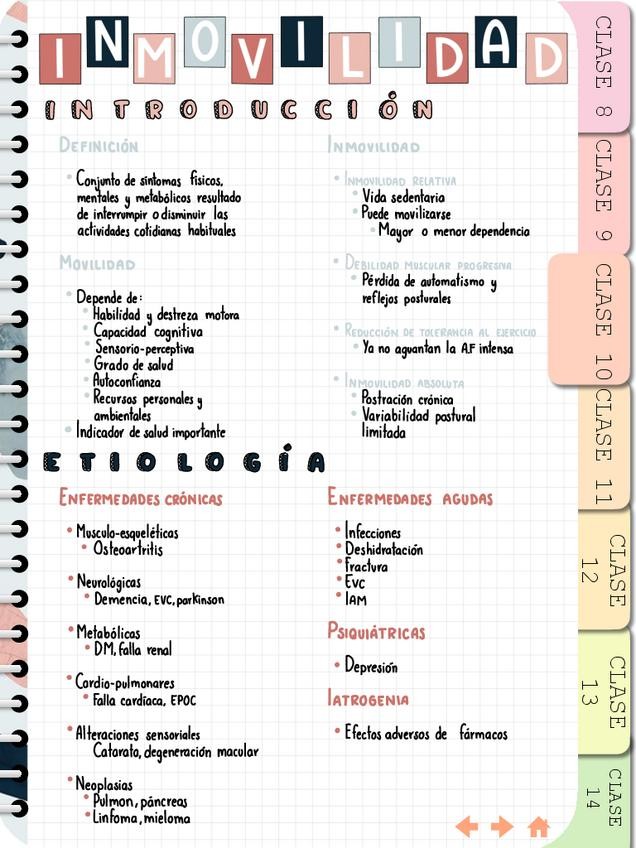 INMOVILIDAD
INTRODUCCIÓN
DEFINICIÓN
Conjunto de síntomas físicos,
mentales y metabólicos resultado
de interrumpir o disminuir las
actividades cotidianas habituales
MOVILIDAD
Depende de:
Habilidad y destreza motora
Capacidad cognitiva
Sensorio-perceptiva
Grado de salud
Autoconfianza
Recursos personales y
ambientales
Indicador de salud importante
INMOVILIDAD
INMOVILIDAD RELATIVA
Vida sedentaria
Puede movilizarse
Mayor o menor dependencia
DEBILIDAD MUSCULAR PROGRESIVA
Pérdida de automatismo y
reflejos posturales
REDUCCIÓN DE TOLERANCIA AL EJERCICIO
Ya no aguantan la A.F intensa
INMOVILIDAD ABSOLUTA
Postración crónica
Variabilidad postural
limitada
ETIOLOGÍA
ENFERMEDADES CRÓNICAS
Musculo-esqueléticas
Osteoartritis
Neurológicas
Demencia, EVC, parkinson
Metabólicas
DM, falla renal
Cardio-pulmonares
Falla cardíaca, EPOC
Alteraciones sensoriales
Catarata, degeneración macular
Neoplasias
Pulmon, páncreas
Linfoma, mieloma
ENFERMEDADES AGUDAS
Infecciones
Deshidratación
Fractura
EVC
IAM
PSIQUIÁTRICAS
Depresión
IATROGENIA
Efectos adversos de fármacos
CLASE 8
CLASE 9
CLASE 10
CLASE 11
CLASE
12
CLASE
13
CLASE
14